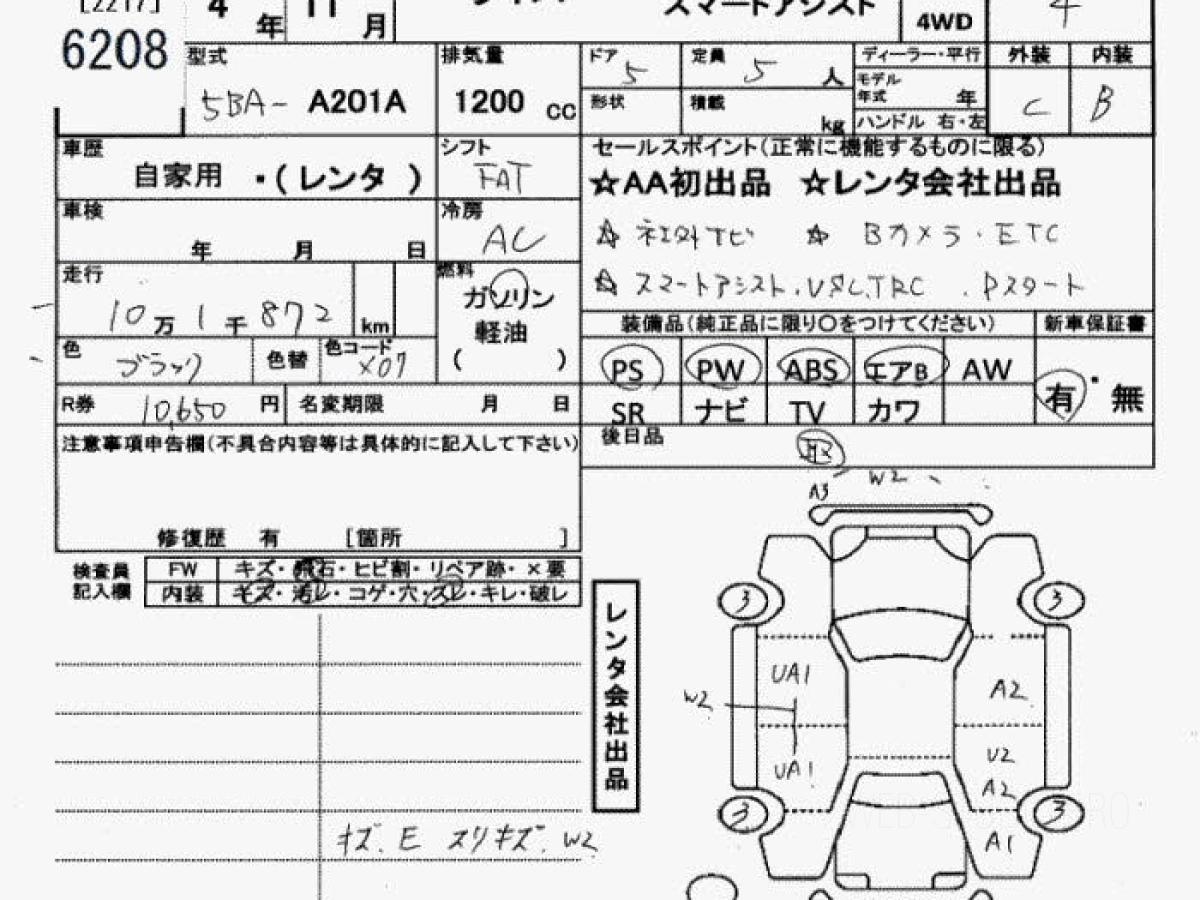 [2217] 4 11
6208 年 月 スマートアシスト 4WD 4
型式 排気量 ドア 5 定員 5 人 ディーラー・平行 外装 内装
5BA- A201A 1200 cc 形状 積載 kg モデル年式 年 C B
ハンドル 右・左
車歴 シフト セールスポイント(正常に機能するものに限る)
自家用 ・(レンタ ) FAT ☆AA初出品 ☆レンタ会社出品
車検 冷房
年 月 日 AC ☆ 社外ナビ ☆ Bカメラ・ETC
走行 燃料 ☆ スマートアシスト.VSC.TRC . Pスタート
10万1千872 km ガソリン
軽油
( )
装備品(純正品に限り○をつけてください) 新車保証書
色 ブラック 色替 色コード X07
PS PW ABS エアB AW 有・無
SR ナビ TV カワ
R券 10,650 円 名変期限 月 日
後日品 取
注意事項申告欄(不具合内容等は具体的に記入して下さい)
修復歴 有 [箇所 ]
検査員記入欄 FW キズ・飛石・ヒビ割・リペア跡・×要
内装 キズ・汚レ・コゲ・穴・スレ・キレ・破レ
レンタ会社出品
A3 W2
3 3
UA1 A2
W2
U2
UA1 A2
3 3
A1
キズ.E スリキズ.W2